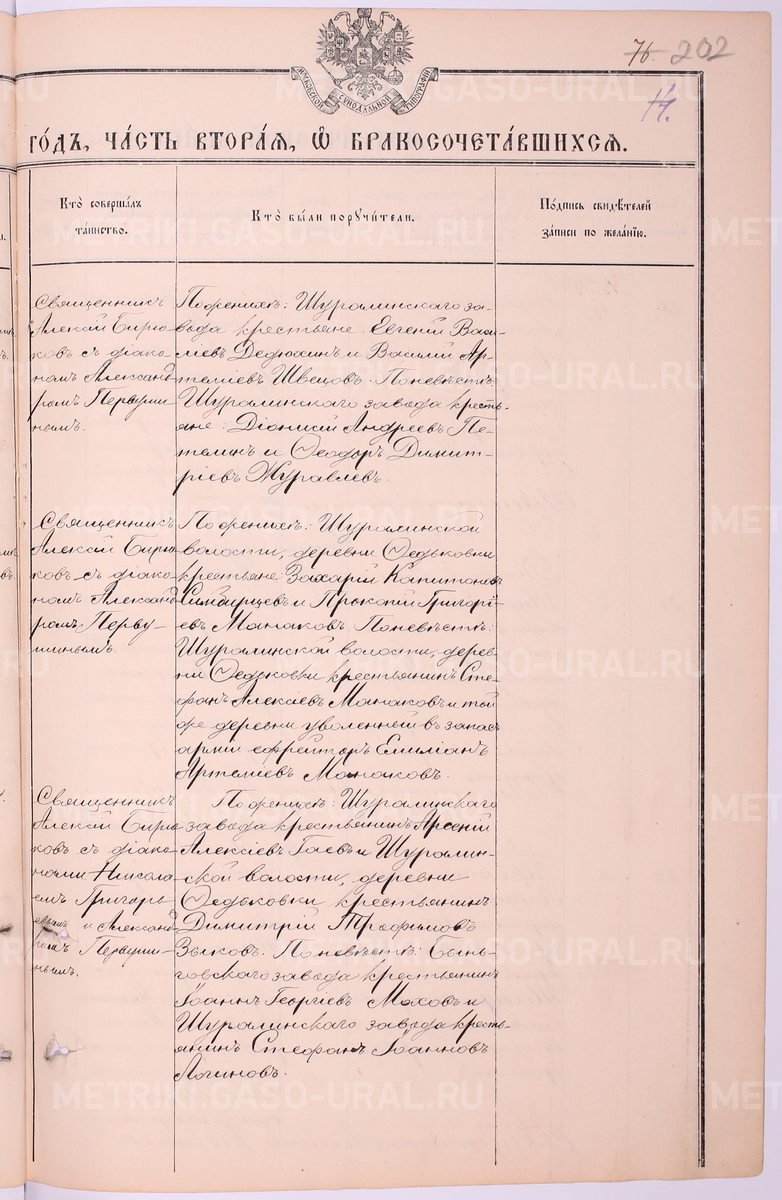 76. 202
14.
МОСКОВСКОЙ СѴНОДАЛЬНОЙ ТИПОГРАФІИ
ГО́ДЪ, ЧА́СТЬ ВТОРА́Я, Ѽ БРАКОСОЧЕТА́ВШИХСЯ.
Кто̀ соверша́лъ
та́инство.
Кто̀ бы́ли порꙋчи́тели.
По́дпись свидѣ́телей
за́писи по жела́нїю.
Священникъ
Алексій Бирю-
ковъ съ діако-
номъ Александ-
ромъ Первуши-
нымъ.
По женихѣ: Шуралинскаго за-
вода крестьяне: Евгеній Васи-
ліевъ Дедюхинъ и Василій Ар-
теміевъ Швецовъ. По невѣстѣ:
Шуралинскаго завода кресть-
яне: Діонисій Андреевъ Пе-
телинъ и Ѳеодоръ Димит-
ріевъ Журавлевъ.
Священникъ
Алексій Бирю-
ковъ съ діако-
номъ Александ-
ромъ Перву-
шинымъ.
По женихѣ: Шуралинской
волости, деревни Ѳедьковки
крестьяне: Захарій Капитоновъ
Симбирцевъ и Прокопій Григорі-
евъ Манаковъ. По невѣстѣ:
Шуралинской волости, дерев-
ни Ѳедьковки крестьянинъ Сте-
фанъ Алексіевъ Манаковъ и той
же деревни уволенный въ запасъ
арміи ефрейторъ Емиліанъ
Артеміевъ Манаковъ.
Священникъ
Алексій Бирю-
ковъ съ діако-
нами Никола-
емъ Григорь-
евымъ и Александ-
ромъ Первуши-
нымъ.
По женихѣ: Шуралинскаго
завода крестьянинъ Арсеній
Алексіевъ Гаевъ и Шуралин-
ской волости, деревни
Ѳедьковки крестьянинъ
Димитрій Трофимовъ
Зыковъ. По невѣстѣ: Бынь-
говскаго завода крестьянинъ
Іоаннъ Георгіевъ Моховъ и
Шуралинскаго завода кресть-
янинъ Стефанъ Іоанновъ
Логиновъ.
METRIKI.GASO-URAL.RU